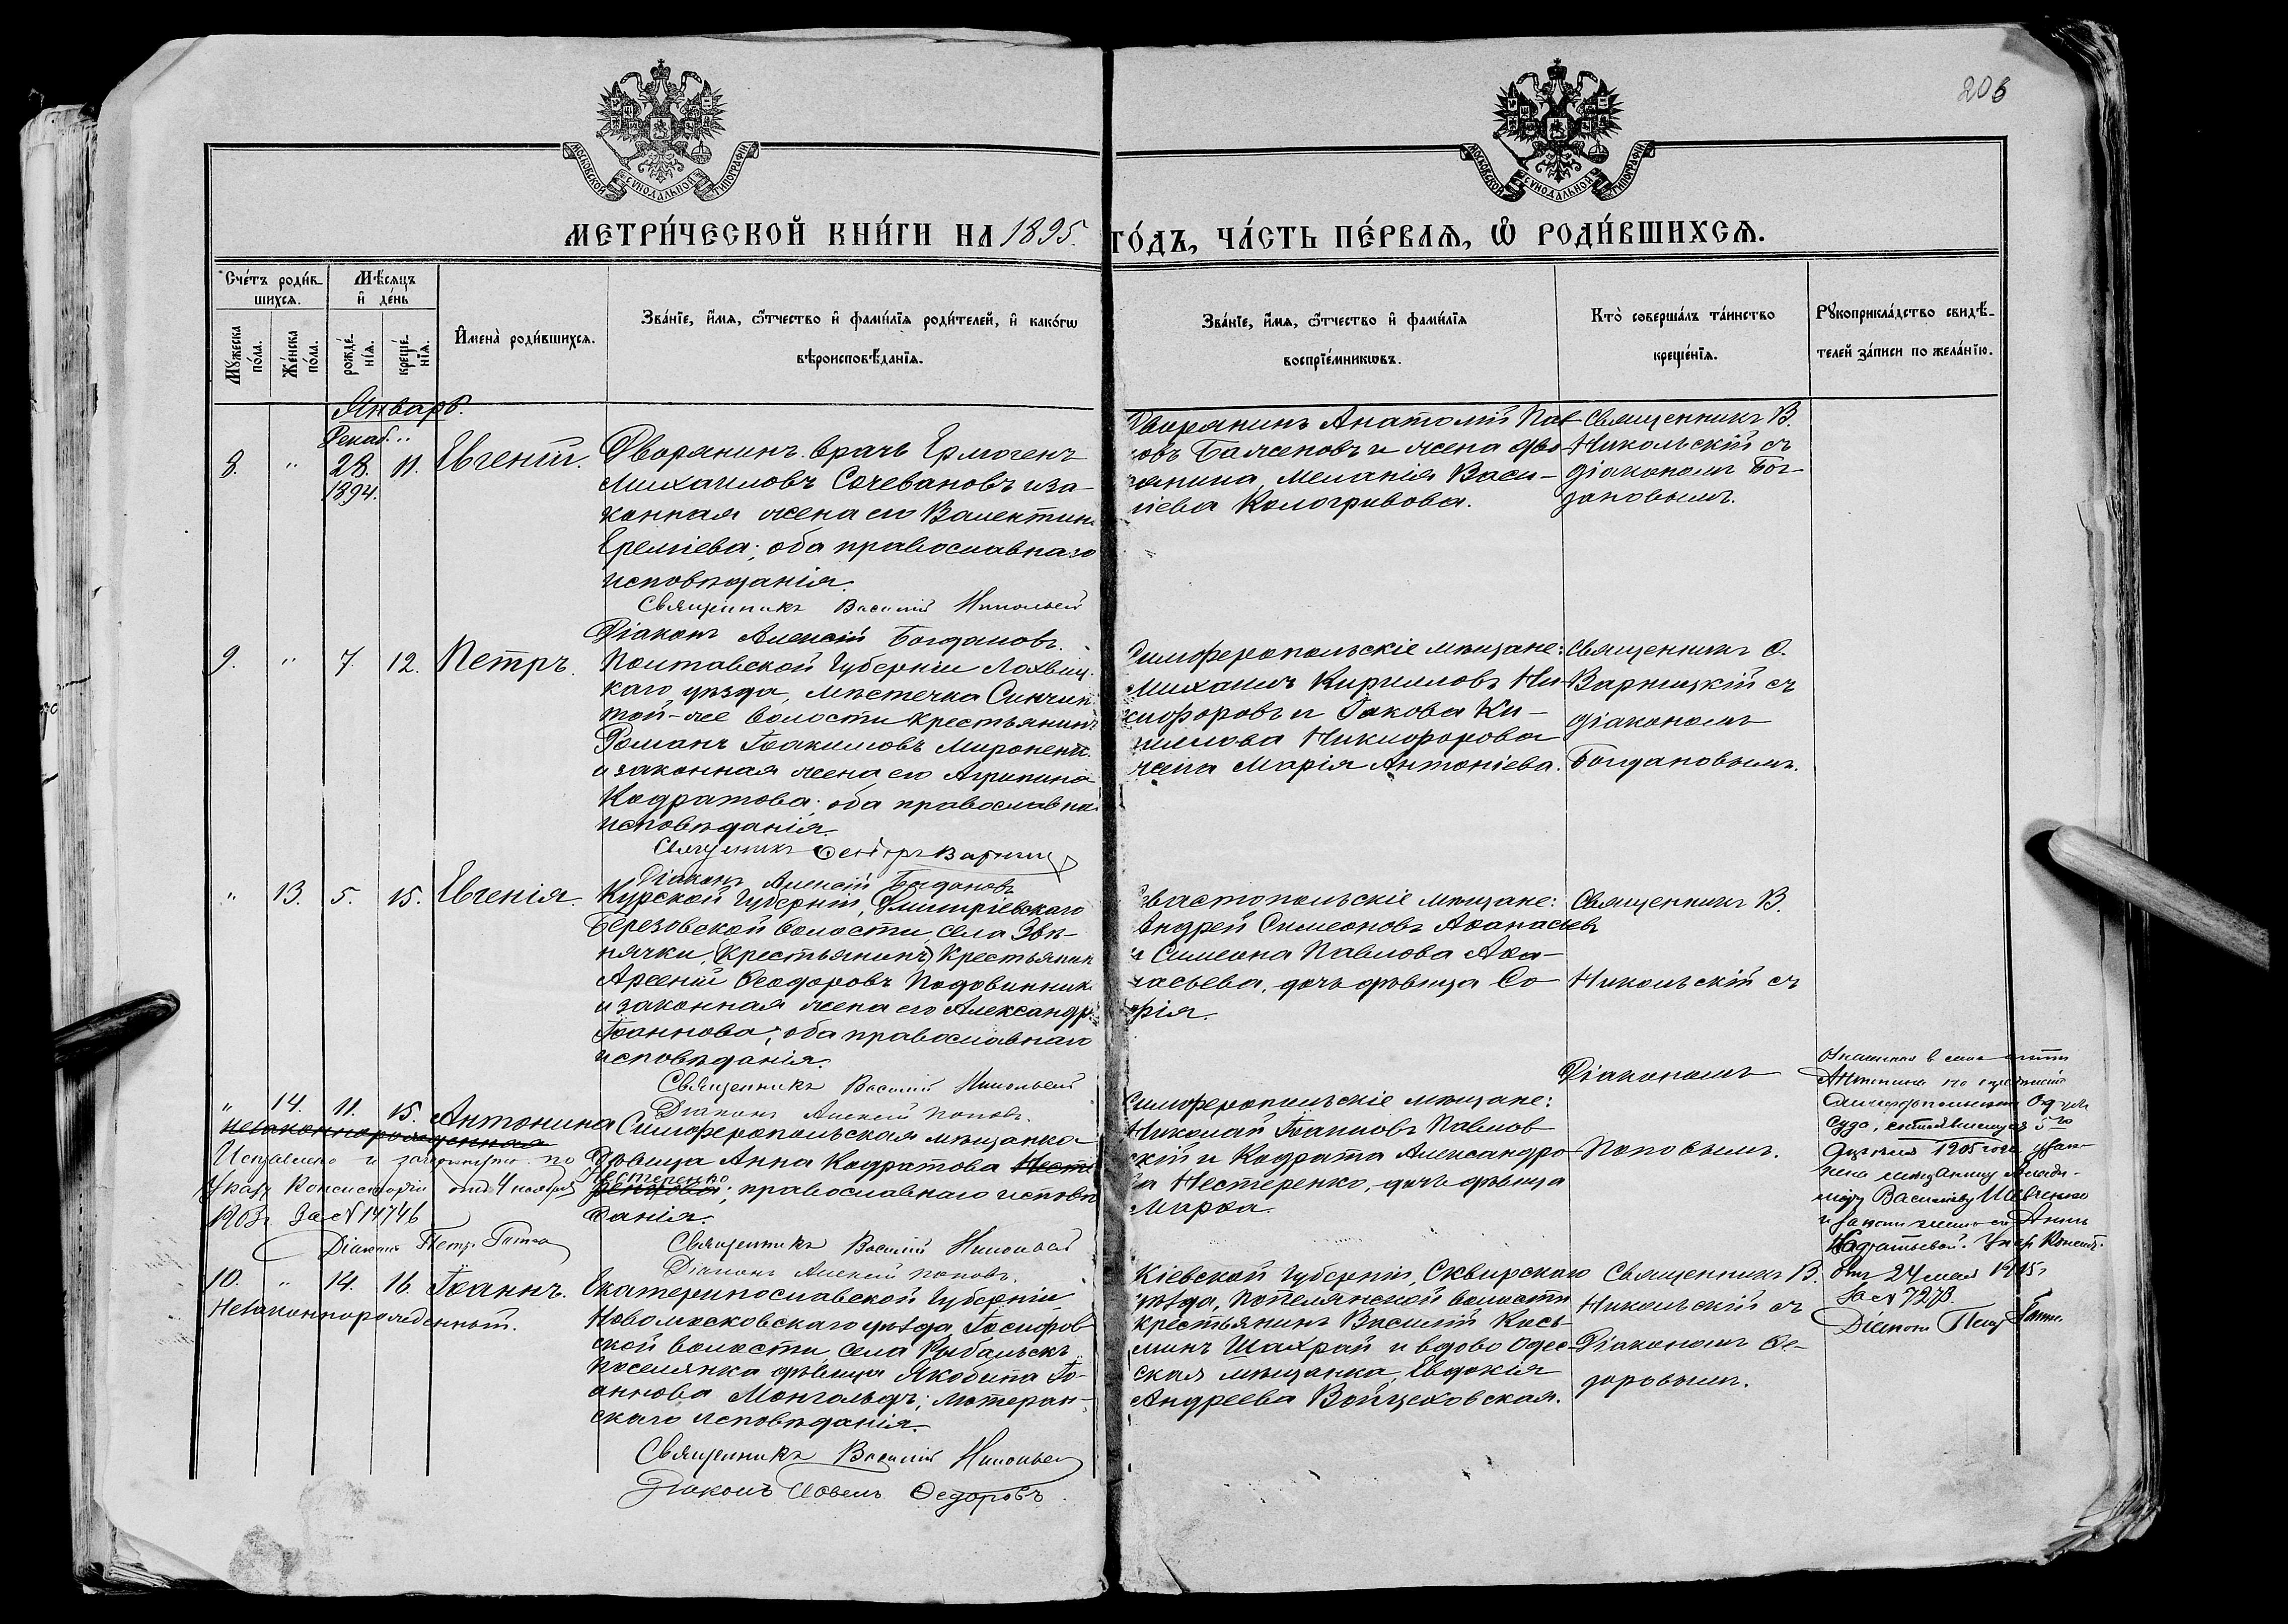 206
МОСКОВСКОЙ СѴНОДАЛЬНОЙ ТИПОГРАФІИ
МОСКОВСКОЙ СѴНОДАЛЬНОЙ ТИПОГРАФІИ
МЕТРИ́ЧЕСКОЙ КНИ́ГИ НА 1895. ГО́ДЪ, ЧА́СТЬ ПЕ́РВАѦ, Ѡ҆ РОДИ́ВШИХСѦ.
Сче́тъ роди́в-
шихсѧ.
Мꙋ́жеска по́ла.
Же́нска по́ла.
Мѣ́сѧцъ
и҆ де́нь
рожде́-
нїѧ.
креще́-
нїѧ.
И҆мена̀ роди́вшихсѧ.
Зва́нїе, и҆́мѧ, ѻ҆́тчество и҆ фами́лїѧ роди́телей, и҆ како́гѡ
вѣроисповѣ́данїѧ.
Зва́нїе, и҆́мѧ, ѻ҆́тчество и҆ фами́лїѧ
воспрїе́мникѡвъ.
Кто̀ соверша́лъ та́инство
креще́нїѧ.
Рꙋкоприкла́дство свидѣ́-
телей за́писи по жела́нїю.
Январь.
Декаб. "
8. " 28 11. Евгеній.
1894.
Дворянинъ врачъ Ермогенъ
Михаиловъ Сочевановъ и за-
конная жена его Валентин
Еремiева; оба православнаго
исповѣданія.
Священникъ Василій Никольск
Діаконъ Алексій Богдановъ.
Дворянинъ Анатолій Пав
овъ Баженовъ и жена дво-
рянина, Меланія Васи-
ліева Кологривова.
Священникъ В.
Никольскій съ
діакономъ Бог
дановымъ.
9. " 7. 12. Петръ.
Полтавской Губерніи Лохвиц-
каго уѣзда, мѣстечка
той-же волости крестьянинъ
Романъ Іоакимовъ Миронен
и законная жена его Агрипина
Кодратова; оба православна
исповѣданія.
Священникъ Ѳеодоръ Варниц
Діаконъ Алексій Богдановъ
Симферопольскіе мѣщане:
Михаилъ Кирилловъ Ни-
кифоровъ и Іакова Ки-
риллова Никифорова
жена Марія Антоніева.
Священникъ Ѳ.
Варницкій съ
діакономъ
Богдановымъ.
" 13. 5. 15. Евгенія.
Курской Губерніи, Дмитріевскаго
Березовской волости, села Звѣ-
нячки, (крестьянинъ) крестьянин
Арсеній Ѳеодоровъ Подовинник
и законная жена его Александр
Іоаннова; оба православнаго
исповѣданія.
Священникъ Василій Никольск
Діаконъ Алексій Поповъ.
Севастопольскіе мѣщане:
Андрей Симеоновъ Аѳанасьев
и Симеона Павлова Аѳа-
насьева, дочь дѣвица Со-
фія.
Священникъ В.
Никольскій съ
Діакономъ
" 14. 11. 15. Антонина
незаконнорожденная
Исправлено и зачеркнуто по
Указу Консисторіи отъ 4 ноября
1903 г за № 14746
Діаконъ Петръ
Симферопольская мѣщанка
дѣвица Анна Кодратова
Нестеренко
; православнаго исповѣ
данія.
Священникъ Василій Никольск
Діаконъ Алексій Поповъ.
Симферопольскіе мѣщане:
Николай Іоанновъ Павлов
скій и Кодрата Александро-
ва Нестеренко, дочь дѣвица
Марѳа.
Поповымъ.
Антонина по
Симферопольскаго Окруж
Суда, состоявшемуся 5го
1905 года
мѣщанину
Васильеву Шевченко
и законн женѣ его Аннѣ
Кодратьевой. Указ Консист.
отъ 24 мая 1905 г
за № 7273.
Діаконъ Петр
10. " 14. 16. Іоаннъ.
Незаконнорожденный.
Екатеринославской Губерніи
Новомосковскаго уѣзда Іосифов
ской волости села Рыбальск
поселянка дѣвица Якобина Іо-
аннова Монгольдъ; лютеран-
скаго исповѣданія.
Священникъ Василій Никольск
Діаконъ Ѳедоровъ.
Кіевской Губерніи, Сквирскаго
уѣзда, Попелянской волости
крестьянинъ Василій Кось-
минъ Шахрай и вдова Одес-
ская мѣщанка, Евдокія
Андреева Войцеховская.
Священникъ В.
Никольскій съ
Діакономъ Ѳе-
доровымъ.